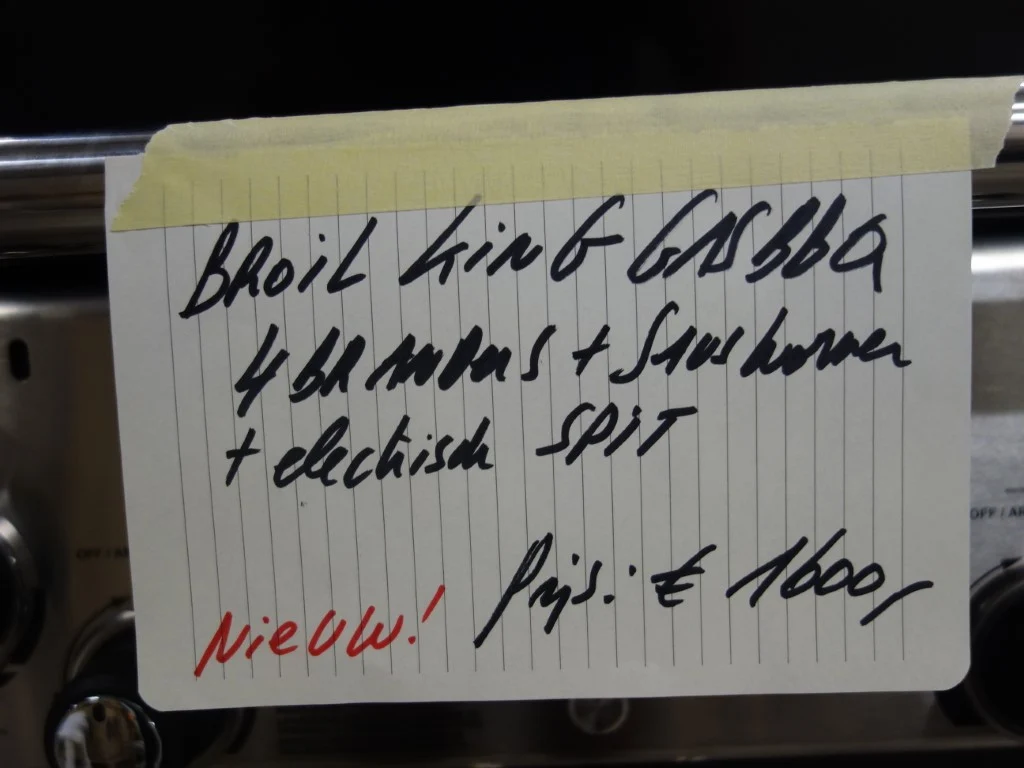 BROIL KING GASBBQ
4 BRANDERS + Sausburner
+ electrisch SPIT
Prijs: € 1600,-
NIEUW!
OFF / 
OFF /